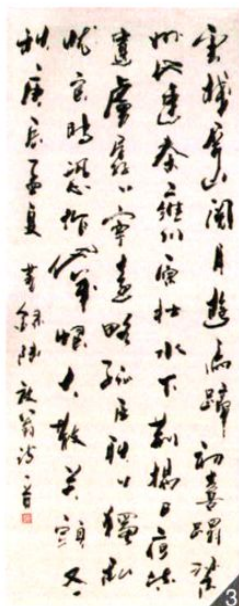 雲棧屏山閱月遊馬蹄初喜躡梁
州地連秦雍川原壯水下荊揚日夜流
遺虜孱々寧遠略孤臣耿々獨私
憂良時恐作他年恨大散關頭又一
秋庚辰孟夏 書錄陸放翁詩一首
3